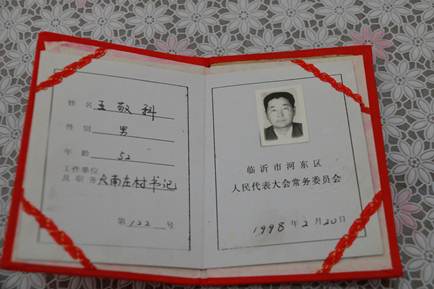 姓名 王敬科
性别 男
年龄 52
工作单位
及职务 大南庄村书记
第 122 号
临沂市河东区
人民代表大会常务委员会
1998 年 2 月 20 日